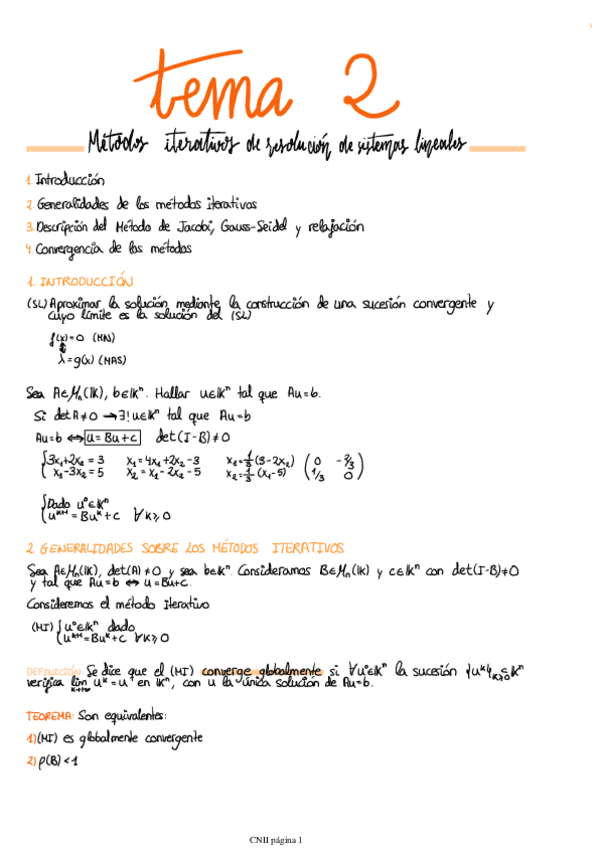 tema 2
Métodos iterativos de resolución de sistemas lineales
1. Introducción
2. Generalidades de los métodos iterativos
3. Descripción del Método de Jacobi, Gauss-Seidel y relajación
4. Convergencia de los métodos
1. INTRODUCCIÓN
(SL) Aproximar la solución mediante la construcción de una sucesión convergente y
cuyo límite es la solución del (SL)
f(x)=0 (MN)
↕
x=g(x) (MAS)
Sea A∈Mₙ(K), b∈Kⁿ. Hallar u∈Kⁿ tal que Au=b.
Si det A≠0 → ∃! u∈Kⁿ tal que Au=b
Au=b ⟺ u=Bu+c det(I-B)≠0
{3x₁+2x₂=3 x₁=4x₁+2x₂-3 x₁=1/3(3-2x₂) (0 -2/3
{x₁-3x₂=5 x₂=x₁-2x₂-5 x₂=1/3(x₁-5) 1/3 0)
{Dado u⁰∈Kⁿ
{uᵏ⁺¹=Buᵏ+c ∀k≥0
2. GENERALIDADES SOBRE LOS MÉTODOS ITERATIVOS
Sea A∈Mₙ(K), det(A)≠0 y sea b∈Kⁿ. Consideramos B∈Mₙ(K) y c∈Kⁿ con det(I-B)≠0
y tal que Au=b ⟺ u=Bu+c.
Consideremos el método iterativo
(MI) {u⁰∈Kⁿ dado
{uᵏ⁺¹=Buᵏ+c ∀k≥0
DEFINICIÓN: Se dice que el (MI) converge globalmente si ∀u⁰∈Kⁿ la sucesión {uᵏ}ₖ≥₀⊆Kⁿ
verifica lim k→+∞ uᵏ=u en Kⁿ, con u la única solución de Au=b.
TEOREMA: Son equivalentes:
1) (MI) es globalmente convergente
2) ρ(B)<1
CNII página 1